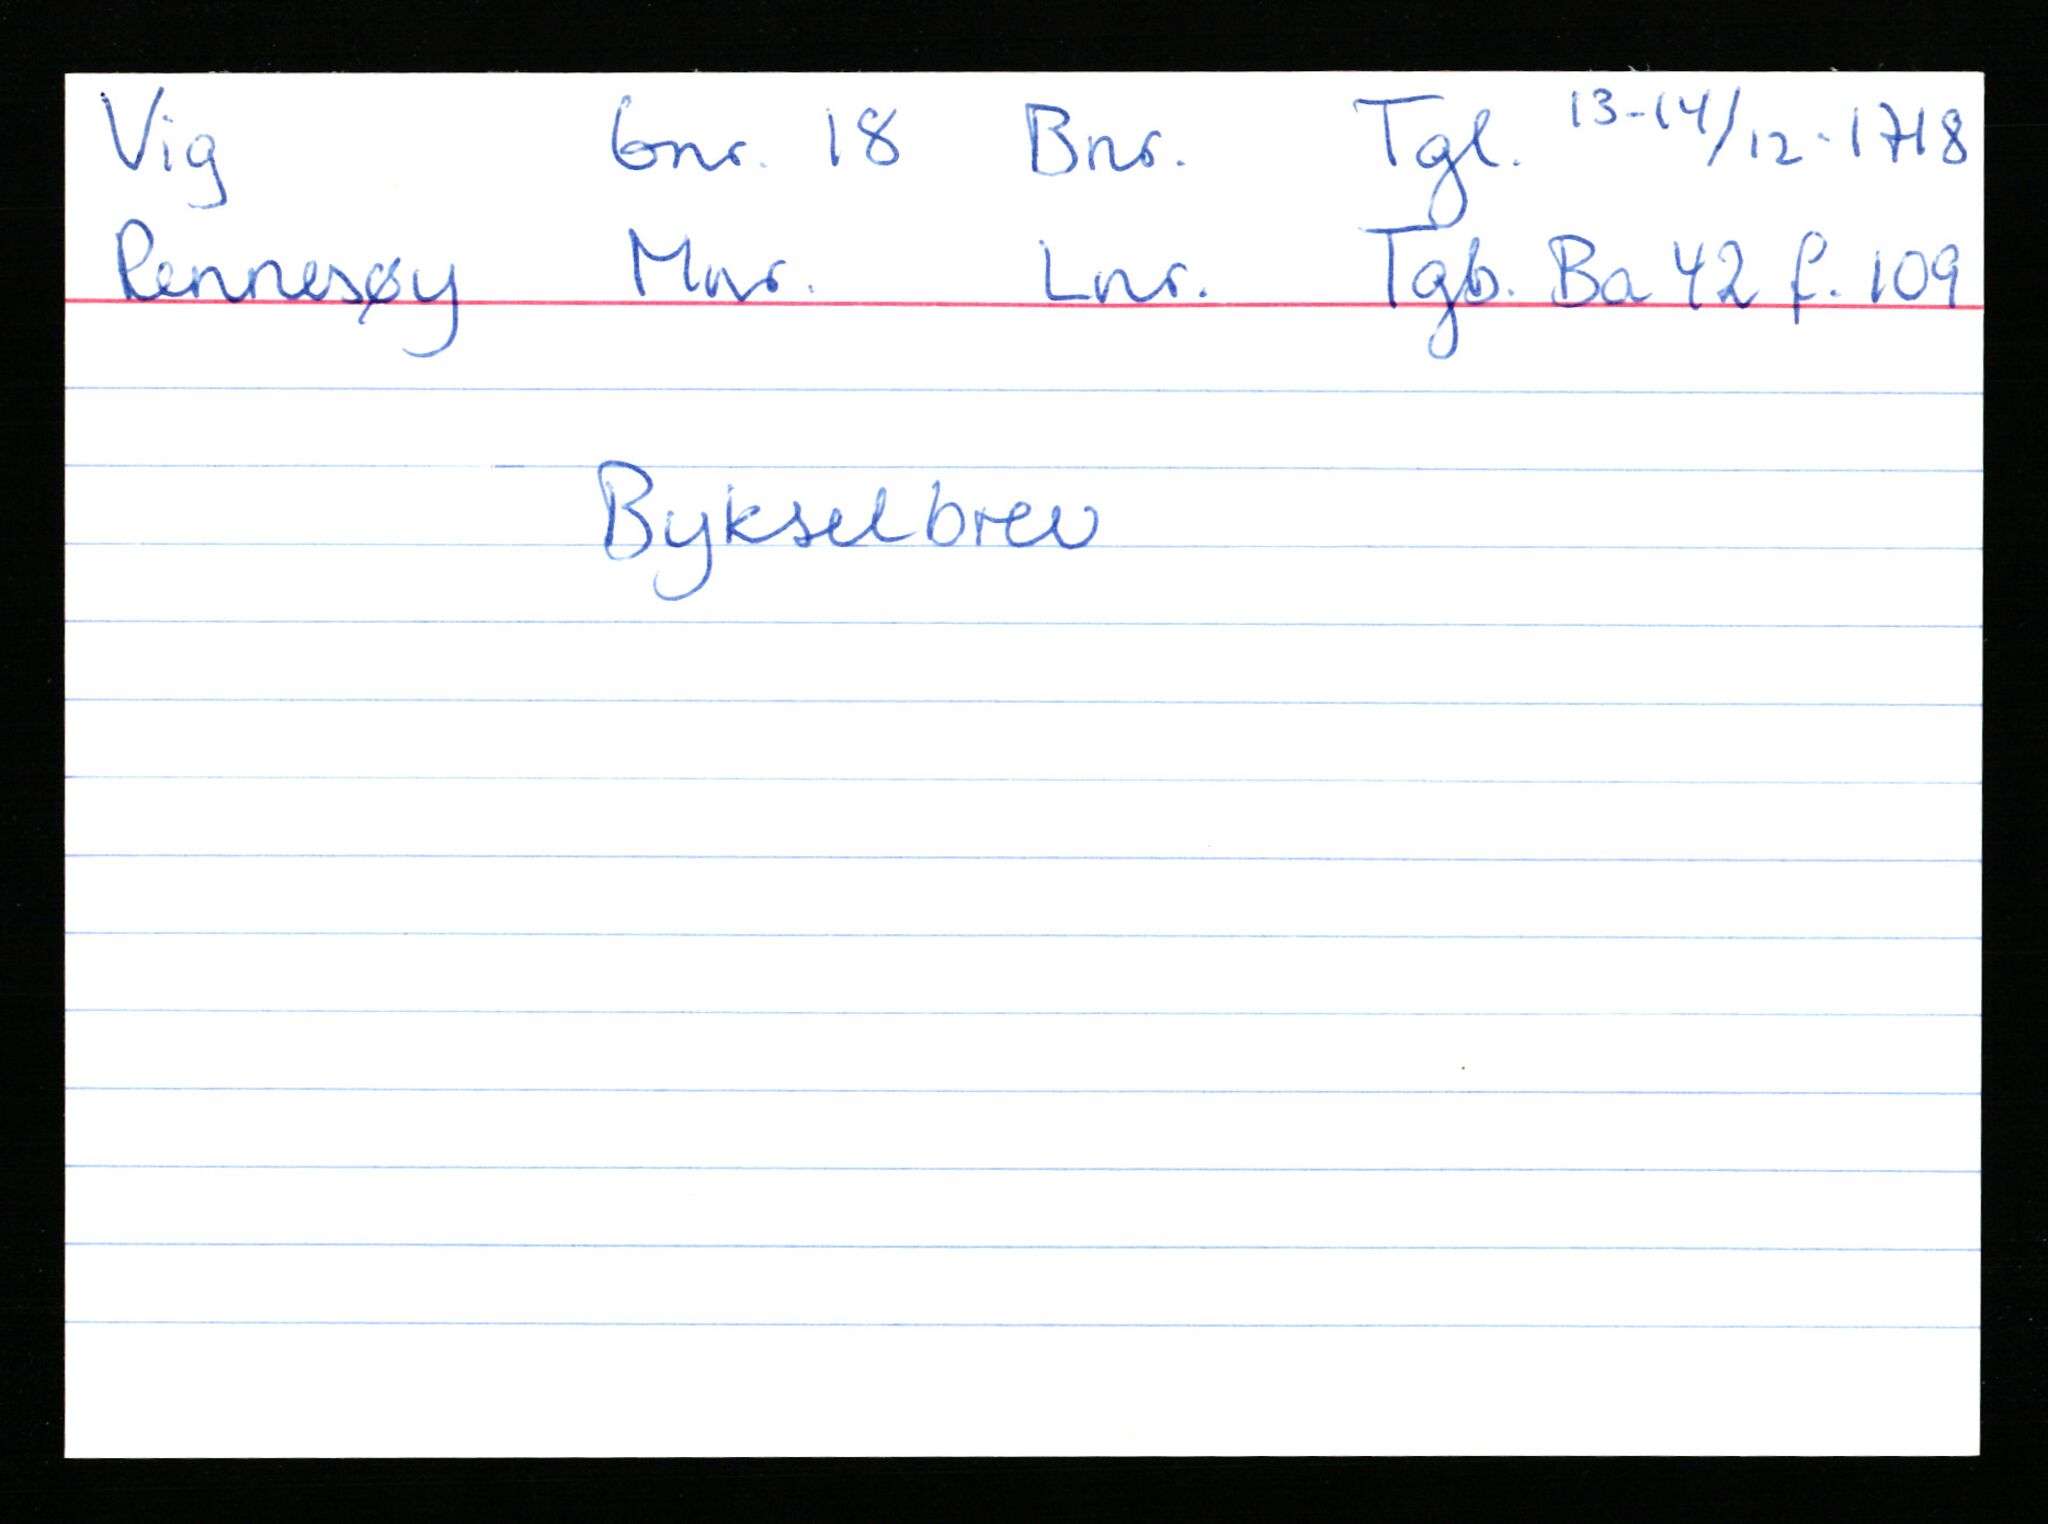 Vig Gnr. 18 Bnr. Tgl. 13-14/12-1718
Rennesøy Mnr. Lnr. Tgb. Ba 42 f. 109
Bykselbrev